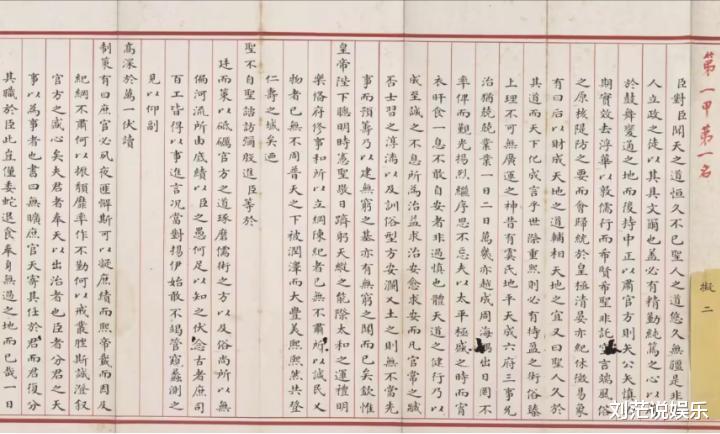 第一甲第一名
擬二
臣對臣聞天之道恒久不已聖人之道悠久無疆是非
人立政之徒以其具文爾也蓋必有精勤純篤之心以
於鼓舞變通之地而後持中正以肅官方則矢公矢慎
期實效去浮華以敦儒行而希賢希聖非託空言端風俗
之原核隄防之要而會歸統於皇極清晏亦紀休徵易象
有曰后以財成天地之道輔相天地之宜又曰聖人久於
其道而天下化成言乎世際重熙則必有持盈之術俗臻
上理不可無廣運之神昔有虞氏地平天成六府三事允
治猶兢兢業業一日二日萬幾亦越成周海隅出日罔不
率俾而覲光揚烈繼序思不忘夫以太平極盛之時而宵
衣旰食一息不敢自安者非過慎也體天道之健行乃以
成至誠之不息所為治益求治安愈求安而凡官常之臧
否士習之淳漓以及訓俗型方安瀾乂土之則無不當先
事而預籌乃以建無窮之基亦有無窮之聞而已矣欽惟
皇帝陛下聰明時憲聖敬日躋躬天縱之能際太和之運禮明
樂備府修事和所以立綱陳紀者已無不肅所以誠民乂
物者已無不周普天之下被潤澤而大豐美熙熙然共登
仁壽之域矣迺
聖不自聖諮訪彌殷進臣等於
廷而策以砥礪官方之道琢磨儒術之方以及俗尚所以無
偏河流所由底績以臣之愚何足以知之伏念古者庶司
百工皆得以事進言況當對揚伊始敢不竭管窺蠡測之
見以仰副
高深於萬一伏讀
制策有曰庶官必夙夜匪懈斯可以凝庶績而熙帝載而因及
紀綱不肅何以振頹靡率作不勤何以戒叢脞斯誠澄叙
官方之盛心矣夫君者奉天以出治者也臣者分君之天
事以為事者也書曰無曠庶官天寄其任於君而君復分
其職於臣此豈僅委蛇退食奉身無過之地而已哉一日
刘茫说娱乐